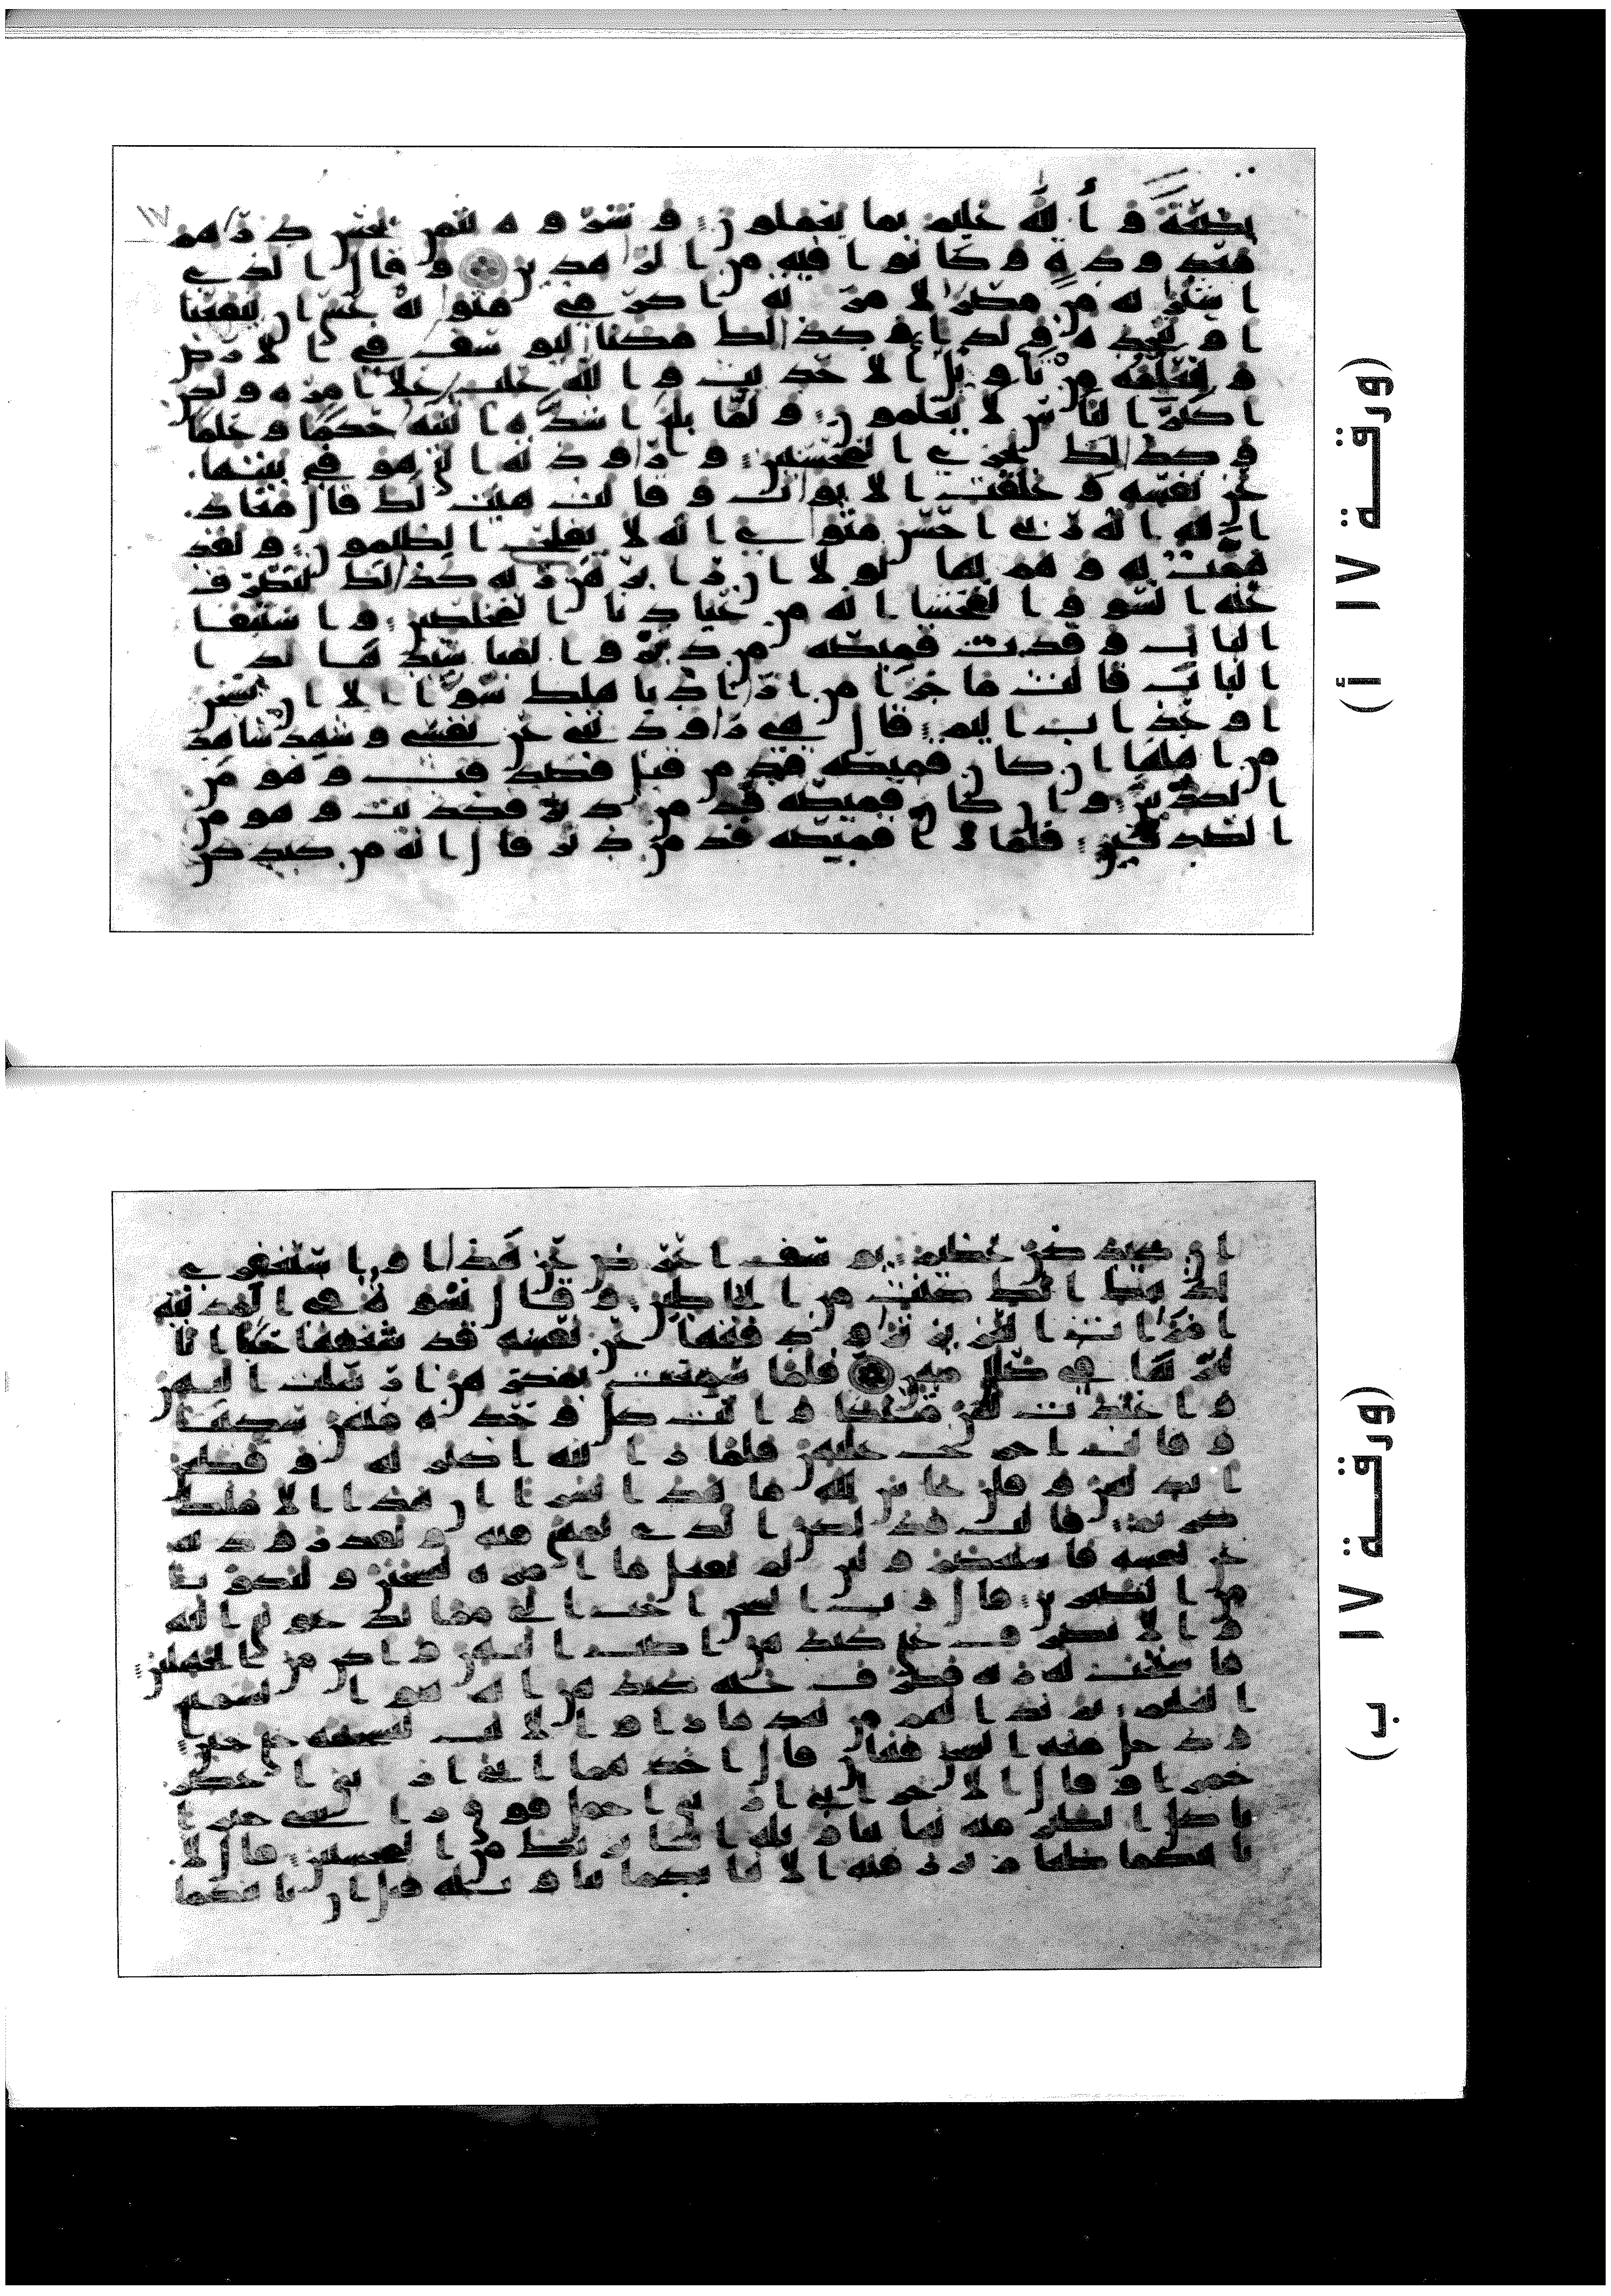 ١٧
بضعة و الله عليم بما يعملون و شروه بثمن بخس درهم
معدودة و كانوا فيه من الزهدين و قال الذي
اشتريه من مصر لامرته اكرمي مثويه عسى ان ينفعنا
او نتخذه ولدا و كذلك مكنا ليوسف في الارض
و لنعلمه من تاويل الاحديث و الله غلب على امره ولكن
اكثر الناس لا يعلمون و لما بلغ اشده اتينه حكما و علما
و كذلك نجزي المحسنين و راودته التي هو في بيتها
عن نفسه و غلقت الابواب و قالت هيت لك قال معاذ
الله انه ربي احسن مثواي انه لا يفلح الظلمون و لقد
همت به و هم بها لولا ان را برهن ربه كذلك لنصرف
عنه السو و الفحشا انه من عبادنا المخلصين و استبقا
الباب و قدت قميصه من دبر و الفيا سيدها لدا
الباب قالت ما جزا من اراد باهلك سوا الا ان يسجن
او عذاب اليم قال هي راودتني عن نفسي و شهد شاهد
من اهلها ان كان قميصه قد من قبل فصدقت و هو من
الكذبين و ان كان قميصه قد من دبر فكذبت و هو من
الصدقين فلما را قميصه قد من دبر قال انه من كيدكن
(ورقــة ١٧ أ)
ان كيدكن عظيم يوسف اعرض عن هذا و استغفري
لذنبك انك كنت من الخاطين و قال نسوة في المدينة
امرات العزيز ترود فتيها عن نفسه قد شغفها حبا انا
لنريها في ضلل مبين فلما سمعت بمكرهن ارسلت اليهن
و اعتدت لهن متكا و اتت كل وحدة منهن سكينا
و قالت اخرج عليهن فلما راينه اكبرنه و قطعن
ايديهن و قلن حاش لله ما هذا بشرا ان هذا الا ملك
كريم قالت فذلكن الذي لمتنني فيه و لقد رودته
عن نفسه فاستعصم و لين لم يفعل ما امره ليسجنن و ليكونا
من الصغرين قال رب السجن احب الي مما يدعونني اليه
و الا تصرف عني كيدهن اصب اليهن و اكن من الجهلين
فاستجب له ربه فصرف عنه كيدهن انه هو السميع
العليم ثم بدا لهم من بعد ما راوا الايت ليسجننه حتى حين
و دخل معه السجن فتين قال احدهما اني اريني اعصر
خمرا و قال الاخر اني اريني احمل فوق راسي خبزا
تاكل الطير منه نبينا بتاويله انا نريك من المحسنين قال لا
ياتيكما طعام ترزقنه الا نباتكما بتاويله قبل ان ياتيكما
(ورقــة ١٧ ب)